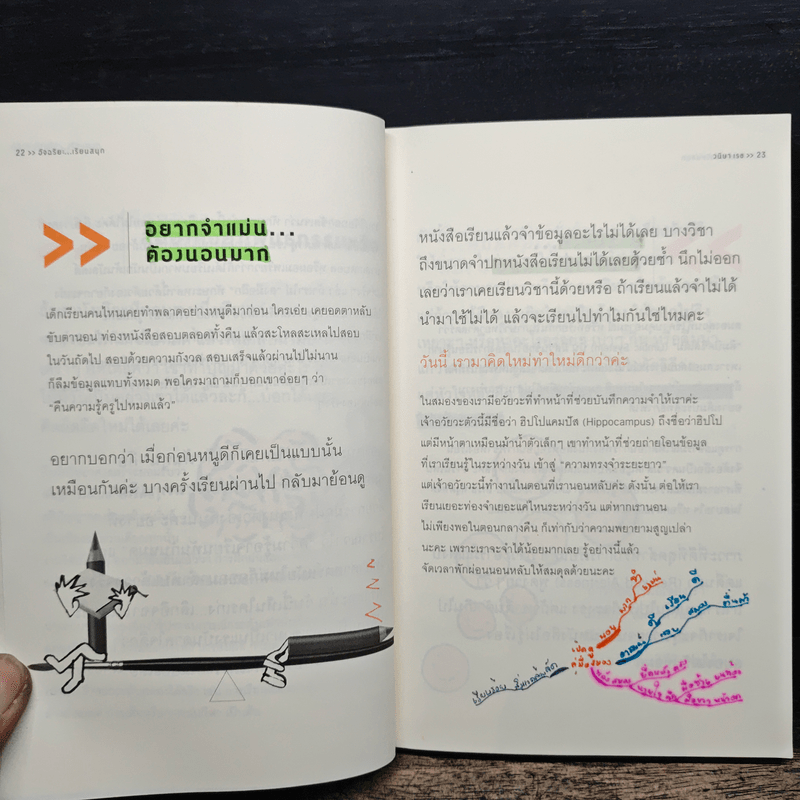 22 >> อัจฉริยะ...เรียนสนุก
>>
อยากจำแม่น...
ต้องนอนมาก
เด็กเรียนคนไหนเคยทำพลาดอย่างหนูดีมาก่อน ใครเอ่ย เคยอดตาหลับ
ขับตานอน ท่องหนังสือสอบตลอดทั้งคืน แล้วสะโหลสะเหลไปสอบ
ในวันถัดไป สอบด้วยความกังวล สอบเสร็จแล้วผ่านไปไม่นาน
ก็ลืมข้อมูลแทบทั้งหมด พอใครมาถามก็บอกเขาอ่อยๆ ว่า
"คืนความรู้ครูไปหมดแล้ว"
อยากบอกว่า เมื่อก่อนหนูดีก็เคยเป็นแบบนั้น
เหมือนกันค่ะ บางครั้งเรียนผ่านไป กลับมาย้อนดู
z
z
z
วนิษา เรซ >> 23
หนังสือเรียนแล้วจำข้อมูลอะไรไม่ได้เลย บางวิชา
ถึงขนาดจำปกหนังสือเรียนไม่ได้เลยด้วยซ้ำ นึกไม่ออก
เลยว่าเราเคยเรียนวิชานี้ด้วยหรือ ถ้าเรียนแล้วจำไม่ได้
นำมาใช้ไม่ได้ แล้วจะเรียนไปทำไมกันใช่ไหมคะ
วันนี้ เรามาคิดใหม่ทำใหม่ดีกว่าค่ะ
ในสมองของเรามีอวัยวะที่ทำหน้าที่ช่วยบันทึกความจำให้เราค่ะ
เจ้าอวัยวะตัวนี้มีชื่อว่า ฮิปโปแคมปัส (Hippocampus) ถึงชื่อว่าฮิปโป
แต่มีหน้าตาเหมือนม้าน้ำตัวเล็กๆ เขาทำหน้าที่ช่วยถ่ายโอนข้อมูล
ที่เราเรียนรู้ในระหว่างวัน เข้าสู่ "ความทรงจำระยะยาว"
แต่เจ้าอวัยวะนี้ทำงานในตอนที่เรานอนหลับค่ะ ดังนั้น ต่อให้เรา
เรียนเยอะท่องจำเยอะแค่ไหนระหว่างวัน แต่หากเรานอน
ไม่เพียงพอในตอนกลางคืน ก็เท่ากับว่าความพยายามสูญเปล่า
นะคะ เพราะเราจะจำได้น้อยมากเลย รู้อย่างนี้แล้ว
จัดเวลาพักผ่อนนอนหลับให้สมดุลด้วยนะคะ